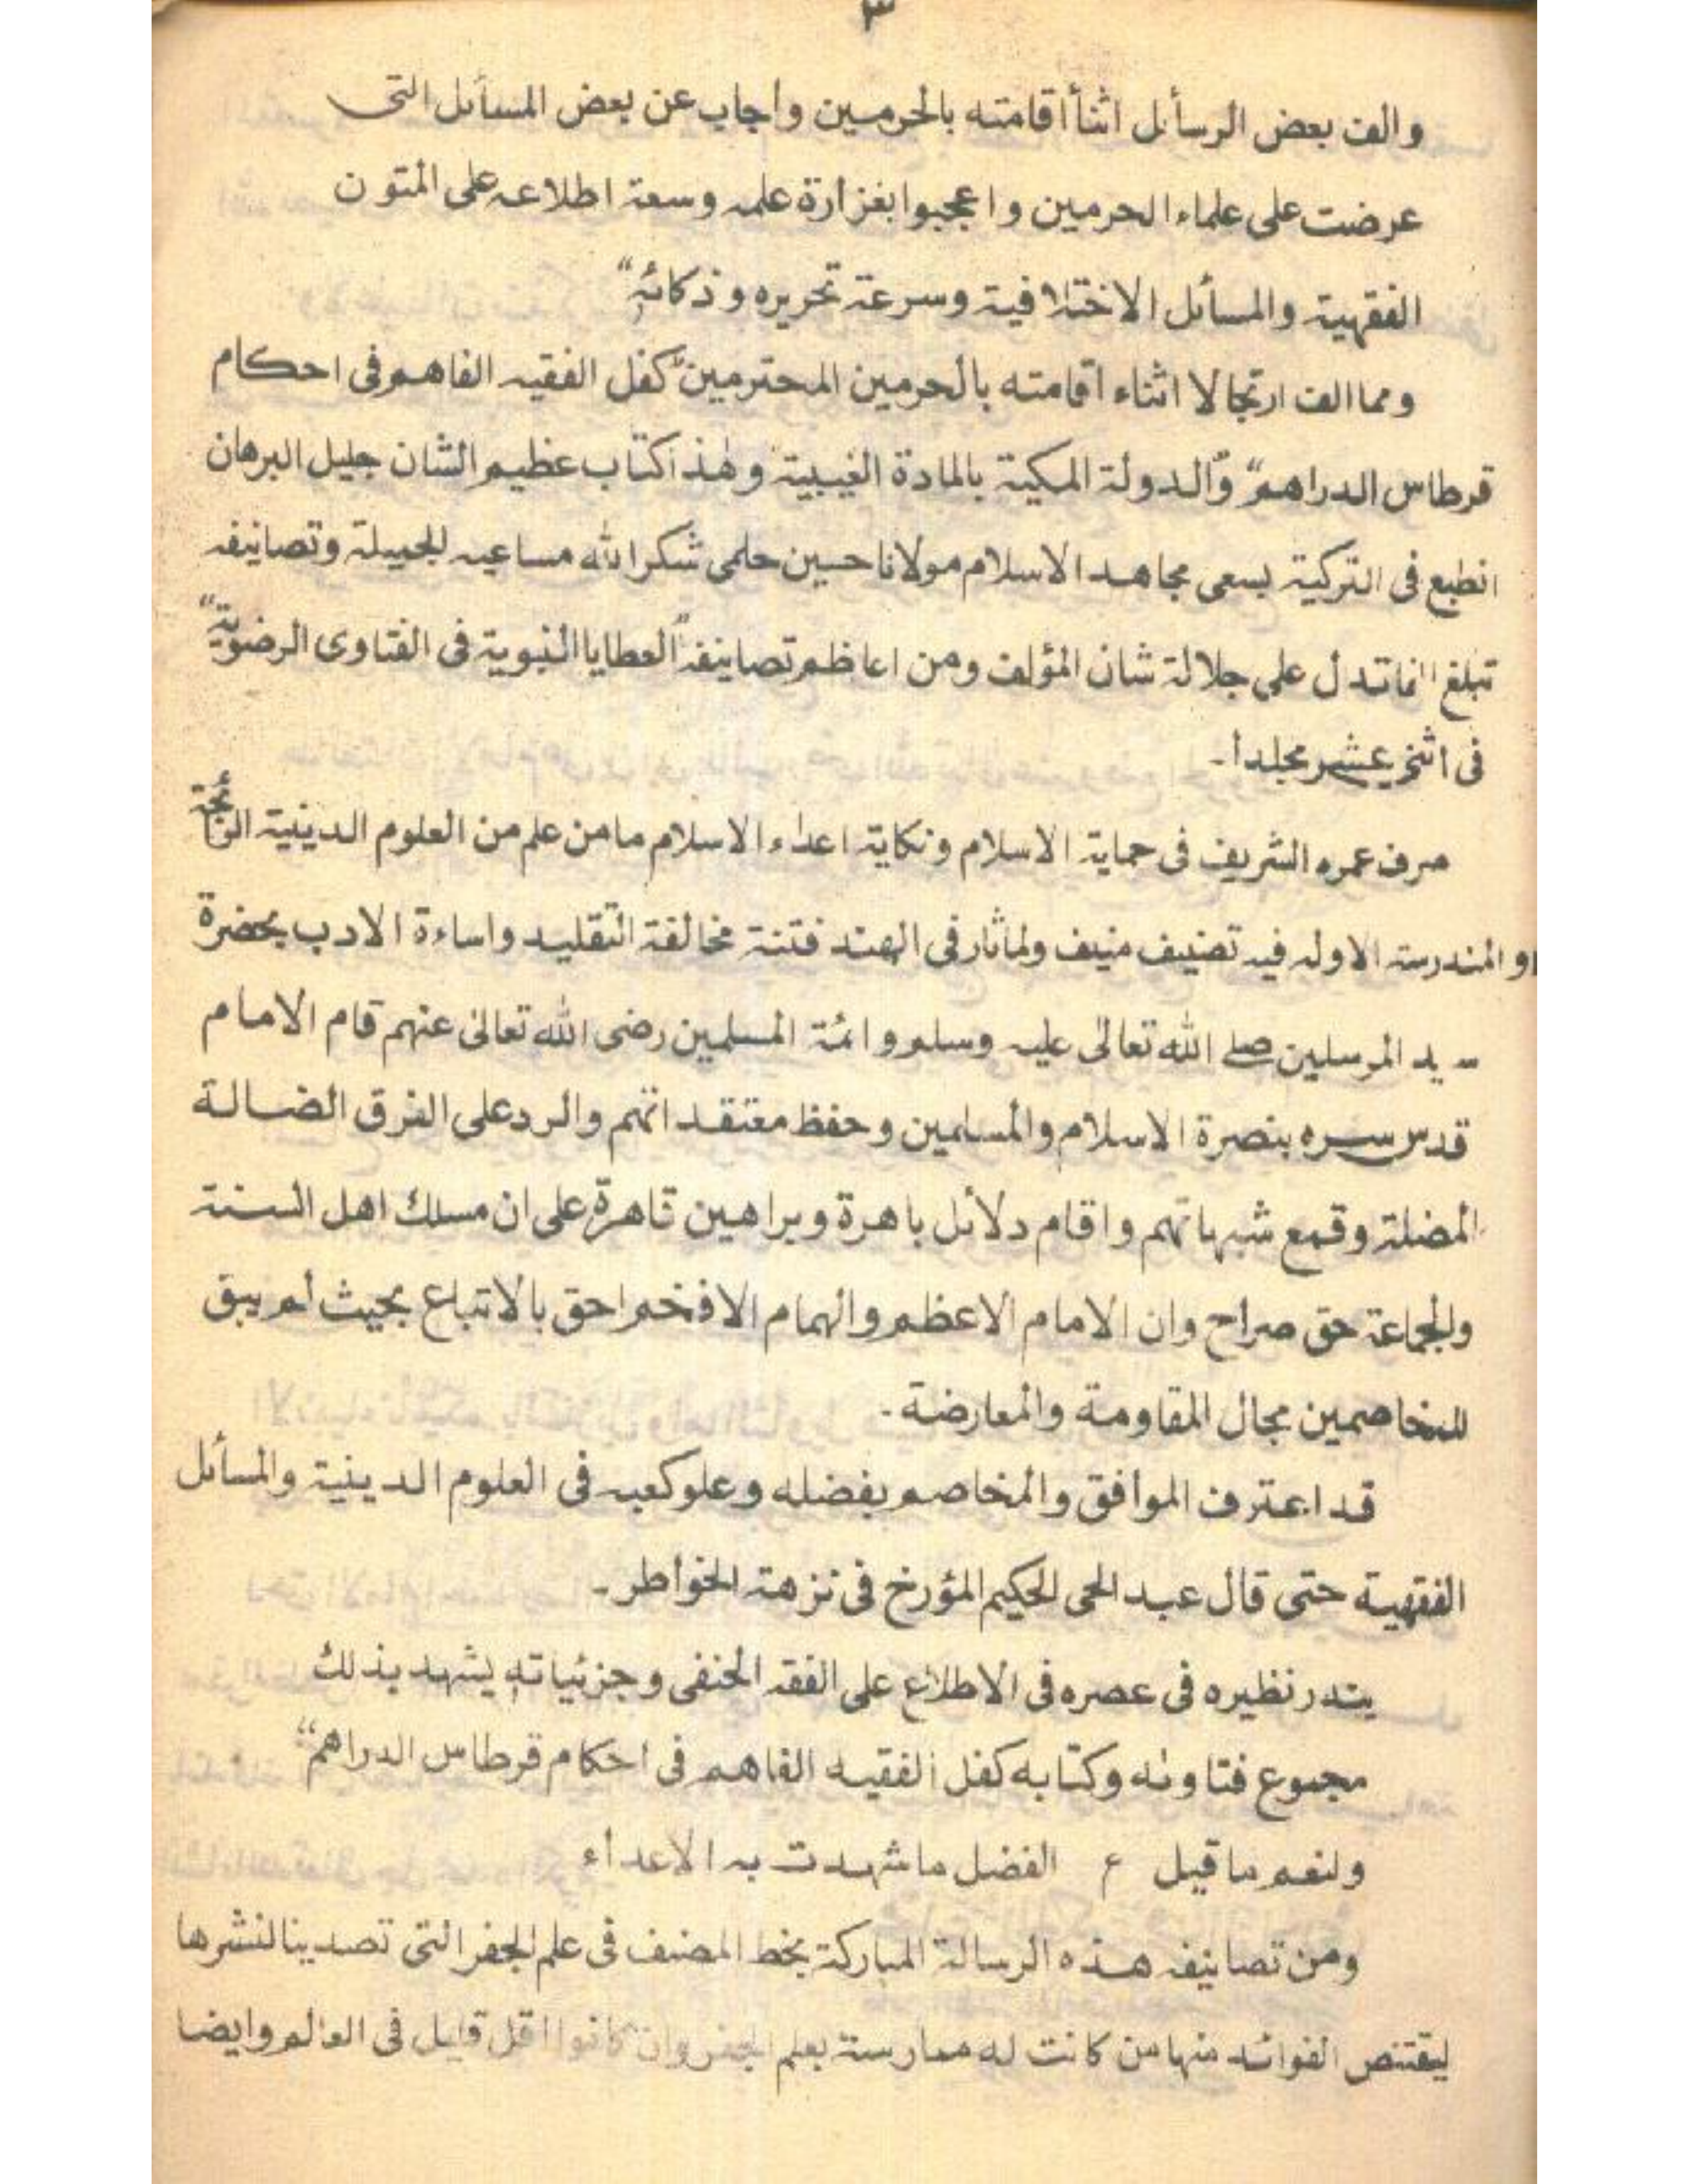 ٣
والف بعض الرسأئل اثنأ اقامته بالحرمين واجاب عن بعض المسائل التى
عرضت على علماء الحرمين واعجبوا بغزارة علمه وسعة اطلاعه على المتون
الفقهية والمسائل الاختلافية وسرعة تحريره وذكائه“
ومما الف ارتجالا اثناء اقامته بالحرمين المحترمين ”كفل الفقيه الفاهم فى احكام
قرطاس الدراهم“ و”الدولة المكية بالمادة الغيبية وهذا كتاب عظيم الشان جليل البرهان
انطبع فى التركية بسعى مجاهد الاسلام مولانا حسين حلمى شكر الله مساعيه الجميلة وتصانيفه
تبلغ الفا تدل على جلالة شان المؤلف ومن اعاظم تصانيفه ”العطايا النبوية فى الفتاوى الرضوية“
فى اثنى عشر مجلدا۔
صرف عمره الشريف فى حماية الاسلام ونكاية اعداء الاسلام مامن علم من العلوم الدينية الرائجة
او المندرسة الاوله فيه تصنيف منيف ولما ثار فى الهند فتنة مخالفة التقليد واساءة الادب بحضرة
سيد المرسلين صلے الله تعالىٰ عليه وسلم وائمة المسلمين رضى الله تعالىٰ عنهم قام الامام
قدس سره بنصرة الاسلام والمسلمين وحفظ معتقداتهم والرد على الفرق الضالة
المضلة وقمع شبهاتهم واقام دلائل باهرة وبراهين قاهرة على ان مسلك اهل السنة
والجماعة حق صراح وان الامام الاعظم والهمام الافخم احق بالاتباع بحيث لم يبق
للمخاصمين مجال المقاومة والمعارضة۔
قد اعترف الموافق والمخاصم بفضله وعلو كعبه فى العلوم الدينية والمسائل
الفقهية حتى قال عبد الحى الحكيم المؤرخ فى نزهة الخواطر۔
يندر نظيره فى عصره فى الاطلاع على الفقه الحنفى وجزئياته يشهد بذلك
مجموع فتاوٰه وكتابه كفل الفقيه الفاهم فى احكام قرطاس الدراهم“
ولنعم ما قيل ع الفضل ما شهدت به الاعداء
ومن تصانيفه هذه الرسالة المباركة بخط المصنف فى علم الجفر التى تصدينا لنشرها
ليقتنص الفوائد منها من كانت له ممارسة بعلم الجفر وان كانوا اقل قليل فى العالم وايضا